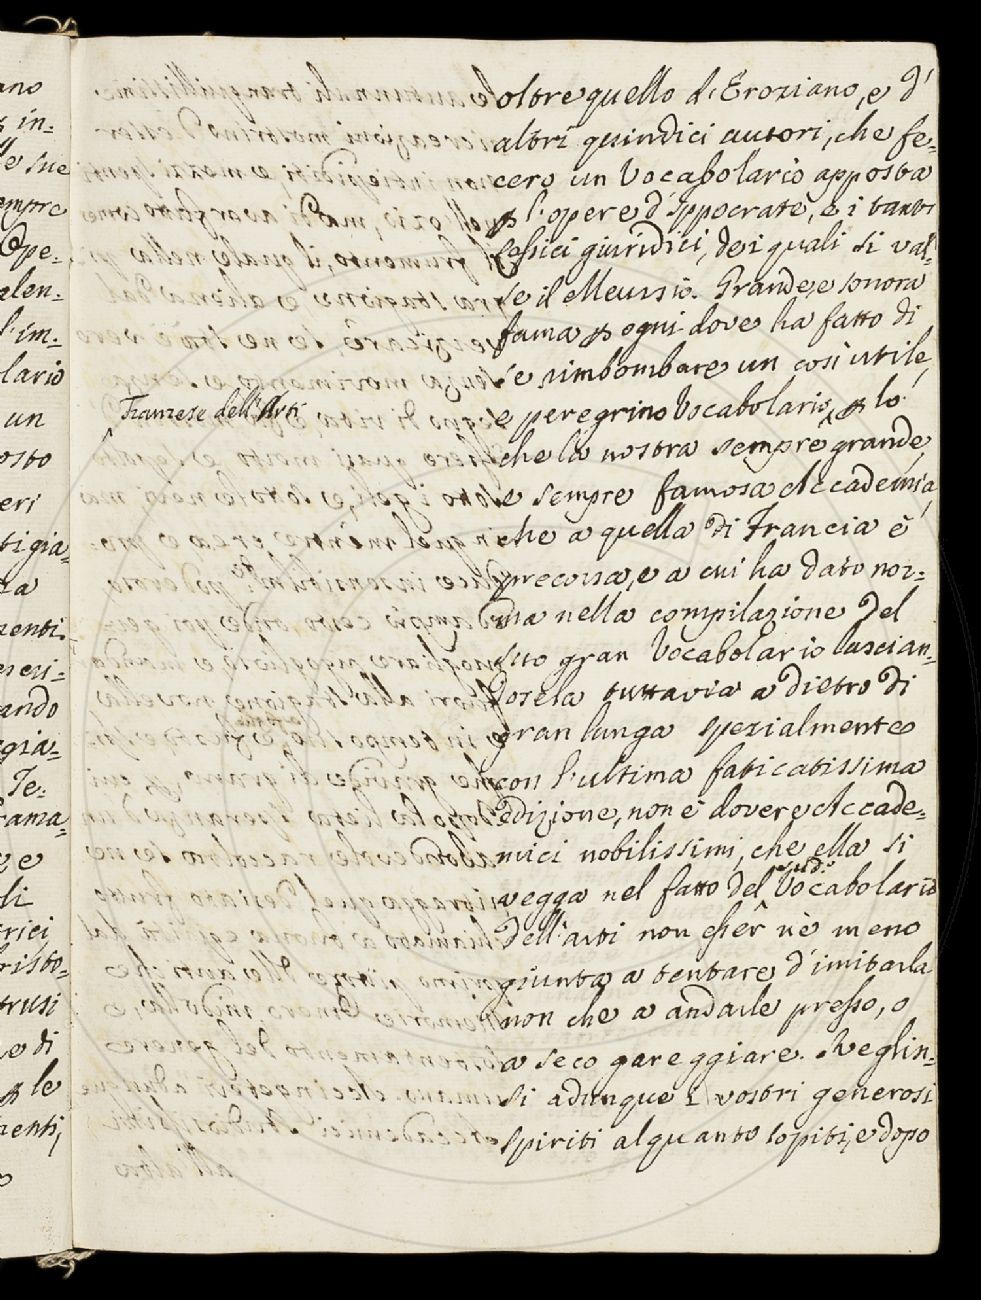 oltre quello di Eroziano, e d'
altri quindici autori, che fe=
cero un Vocabolario apposta
ꝑ l'opere d'Ippocrate, e i tanti
lessici giuridici, dei quali si val=
se il Meursio. Grande, e sonora
fama ꝑ ogni dove ha fatto di
se rimbombare un così utile,
e peregrino Vocabolario, ꝑ lo
Franzese dell'Arti
che la nostra sempre grande,
e sempre famosa Accademia,
che a quella di Francia è
precorsa, e a cui ha dato nor=
ma nella compilazione del
suo gran Vocabolario lascian=
dosela tuttavia a dietro di
gran lunga spezialmente
con l'ultima faticatissima
edizione, non è dovere Accade=
mici nobilissimi, che ella si
vegga nel fatto del sud.º Vocabolario
dell'arti non esser nè meno
giunta a tentare d'imitarla
non che a andarle presso, o
a seco gareggiare. Sveglin=
si adunque i vostri generosi
spiriti alquanto sopiti, e dopo
ano
in=
le sue
empre
Ope=
alen=
l'im=
lario
un
osto
eri
tigia=
ando
gia=
Te=
e di
ꝑ le